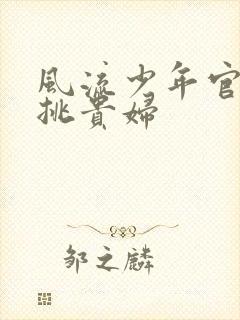 風流少年官
挑貴婦
邹之麟